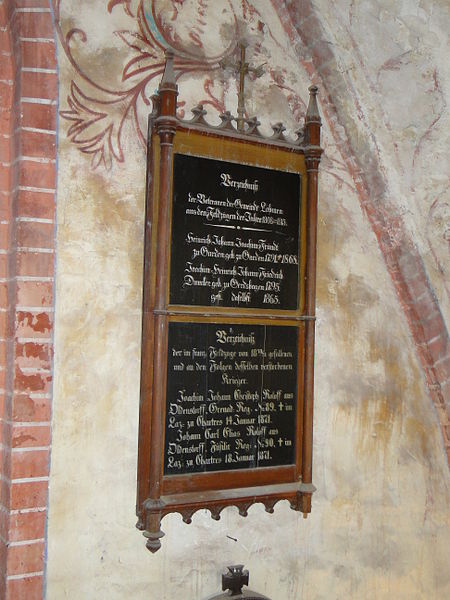 Verzeichniß
der Veteranen der Gemeinde Lohmen
aus den Feldzügen der Jahre 1808-1815.
Heinrich Johann Joachim Fründt
zu Garden geb. zu Garden 1791 † 1868.
Joachim Heinrich Johann Friedrich
Duncker geb. zu Gerdshagen 1795.
gest. daselbst 1865.
Verzeichniß
der im franz. Feldzuge von 18 70/71 gefallenen
und an den Folgen desselben verstorbenen
Krieger.
Joachim Johann Christoph Roloff aus
Oldenstorff, Grenad. Reg. No. 89. † im
Laz. zu Chartres 14. Januar 1871.
Johann Carl Elias Roloff aus
Oldenstorff, Füsilir Reg. No. 90. † im
Laz. zu Chartres 18. Januar 1871.